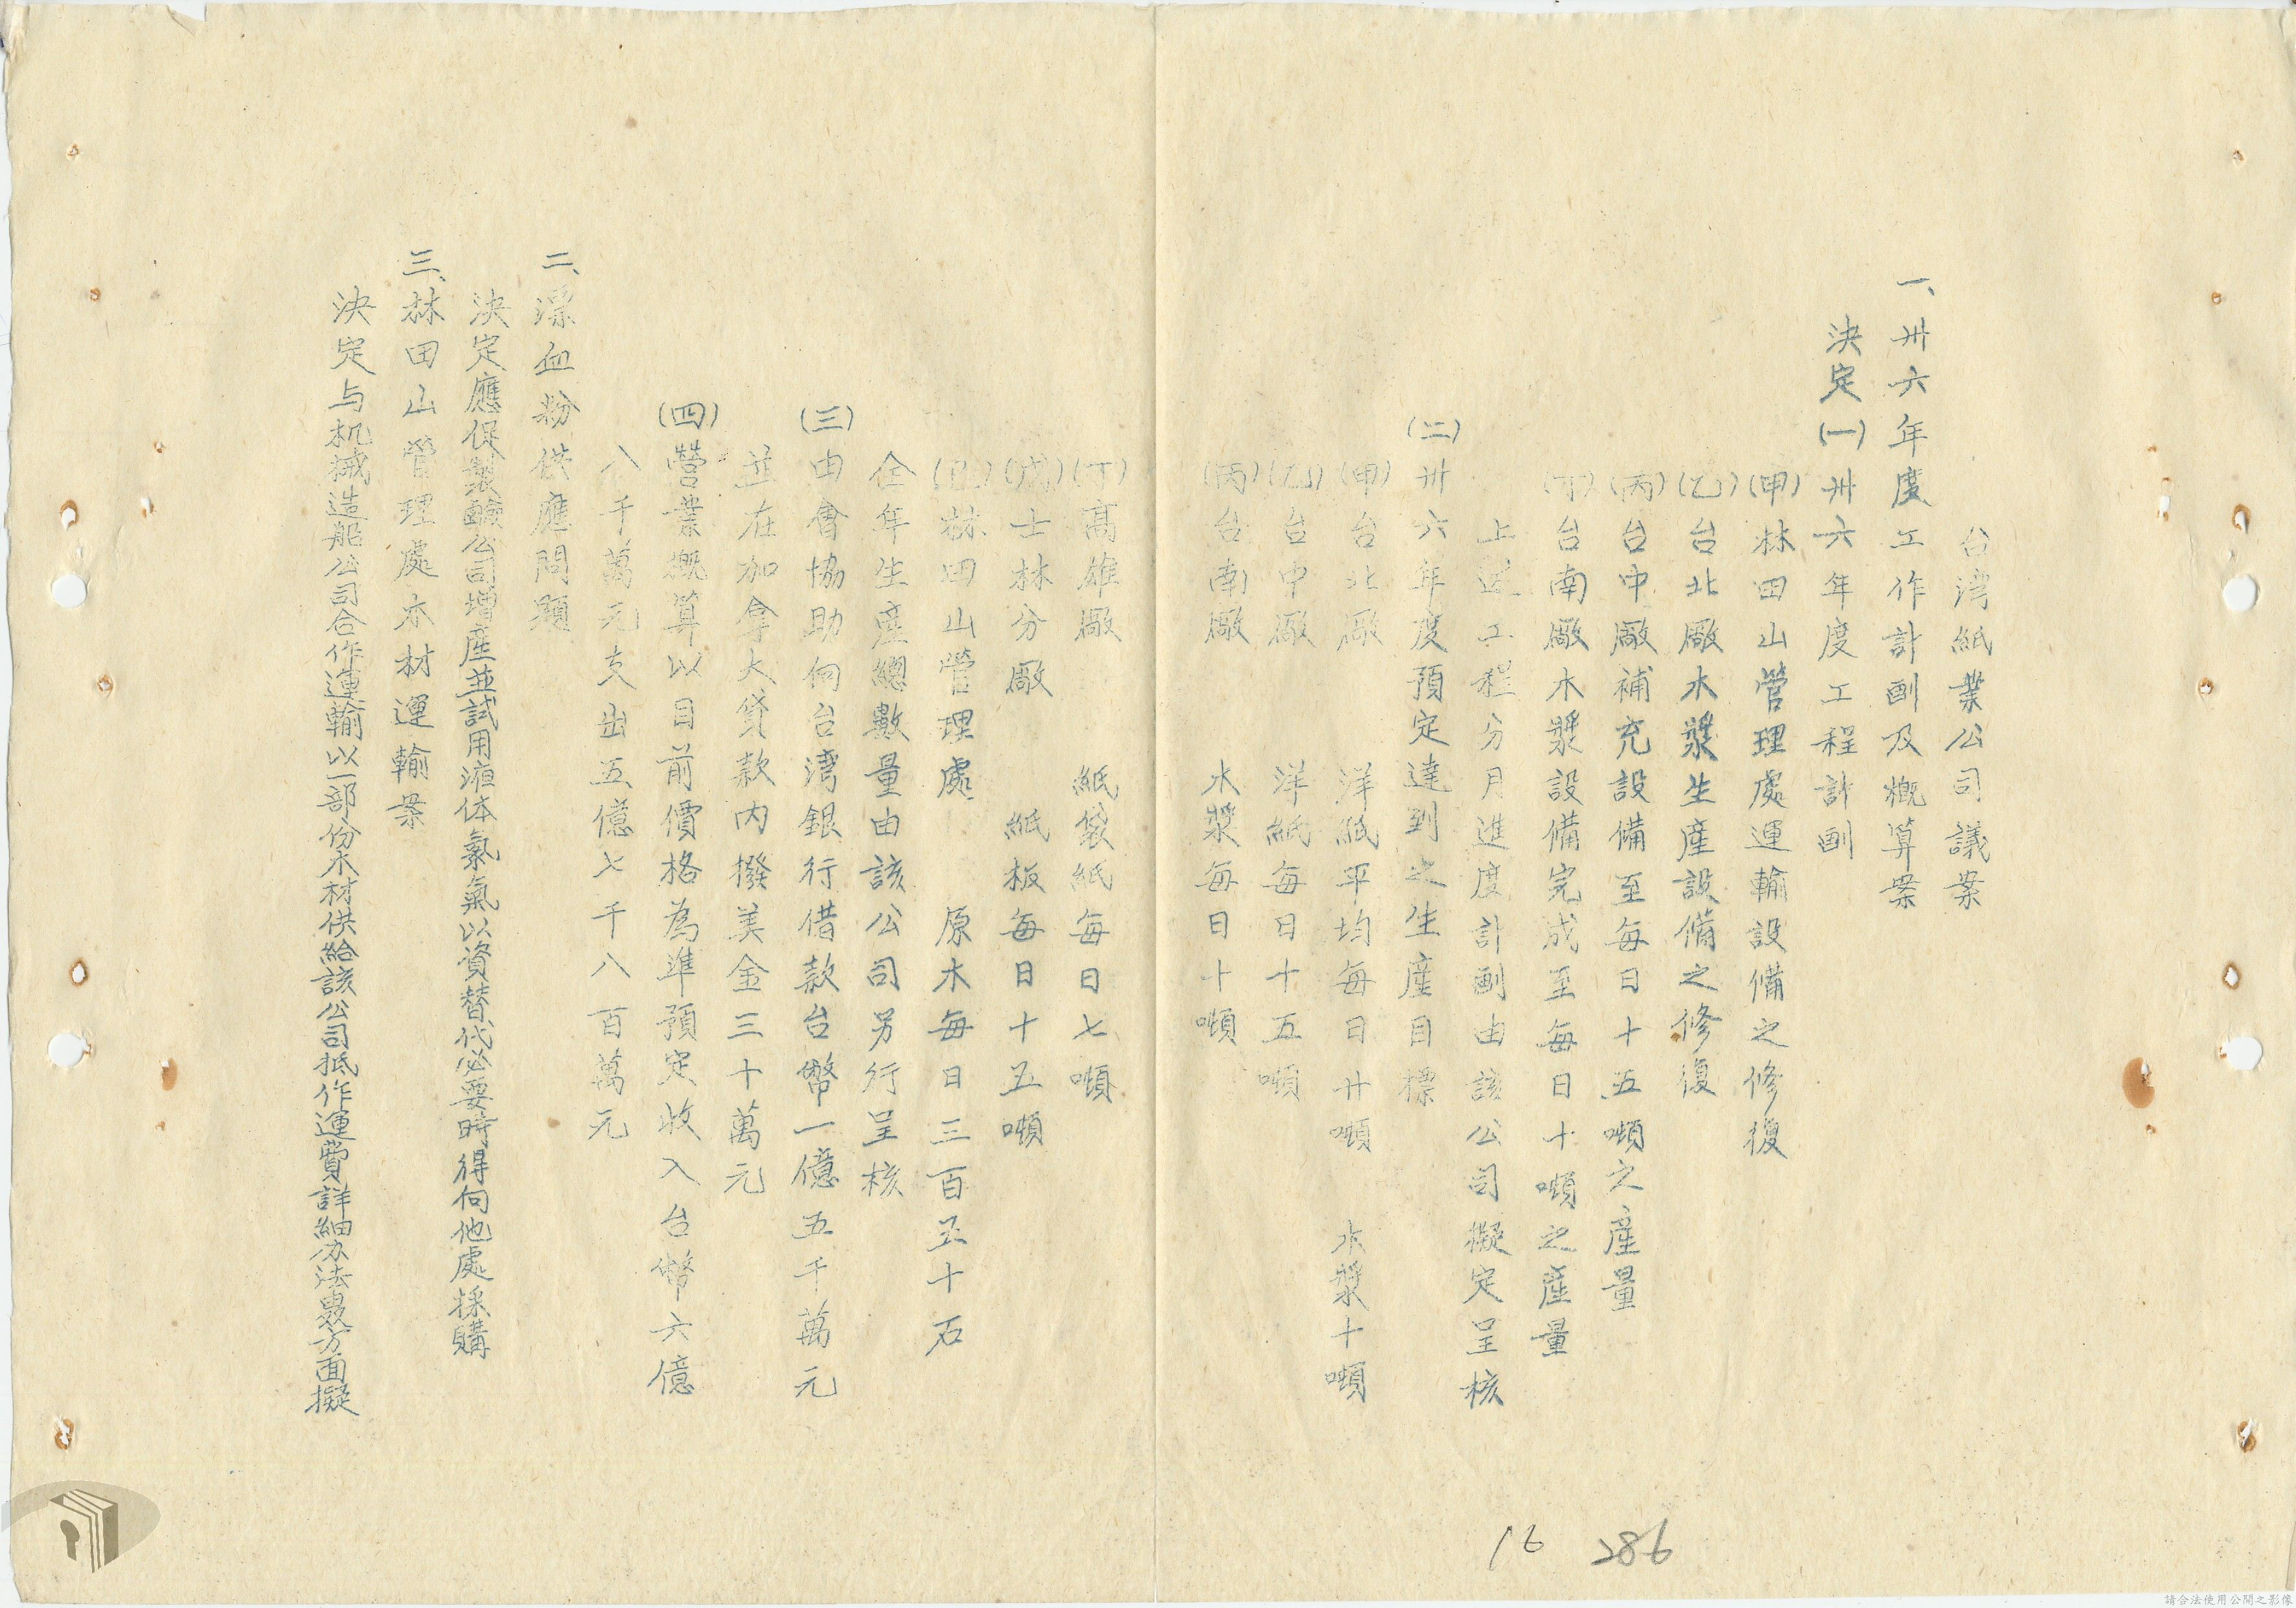 台湾紙業公司議案
一、卅六年度工作計劃及概算案
決定(一)卅六年度工程計劃
(甲)林田山管理處運輸設備之修復
(乙)台北廠水漿生產設備之修復
(丙)台中廠補充設備至每日十五噸之產量
(丁)台南廠木漿設備完成至每日十噸之產量
上述工程分月進度計劃由該公司擬定呈核
(二)卅六年度預定達到之生產目標
(甲)台北廠 洋紙平均每日廿噸 水漿十噸
(乙)台中廠 洋紙每日十五噸
(丙)台南廠 水漿每日十噸
(丁)高雄廠 紙袋紙每日七噸
(戊)士林分廠 紙板每日十五噸
(己)林田山管理處 原木每日三百五十石
全年生產總數量由該公司另行呈核
(三)由會協助向台湾銀行借款台幣一億五千萬元
並在加拿大貸款內撥美金三十萬元
(四)營業概算以目前價格為準預定收入台幣六億
八千萬元支出五億七千八百萬元
二、漂血粉供應問題
決定應促製鹼公司增產並試用液体氯氣以資替代必要時得向他處採購
三、林田山管理處木材運輸案
決定与机械造船公司合作運輸以一部份木材供給該公司抵作運費詳細办法双方面擬
16 286
請合法使用公開之影像